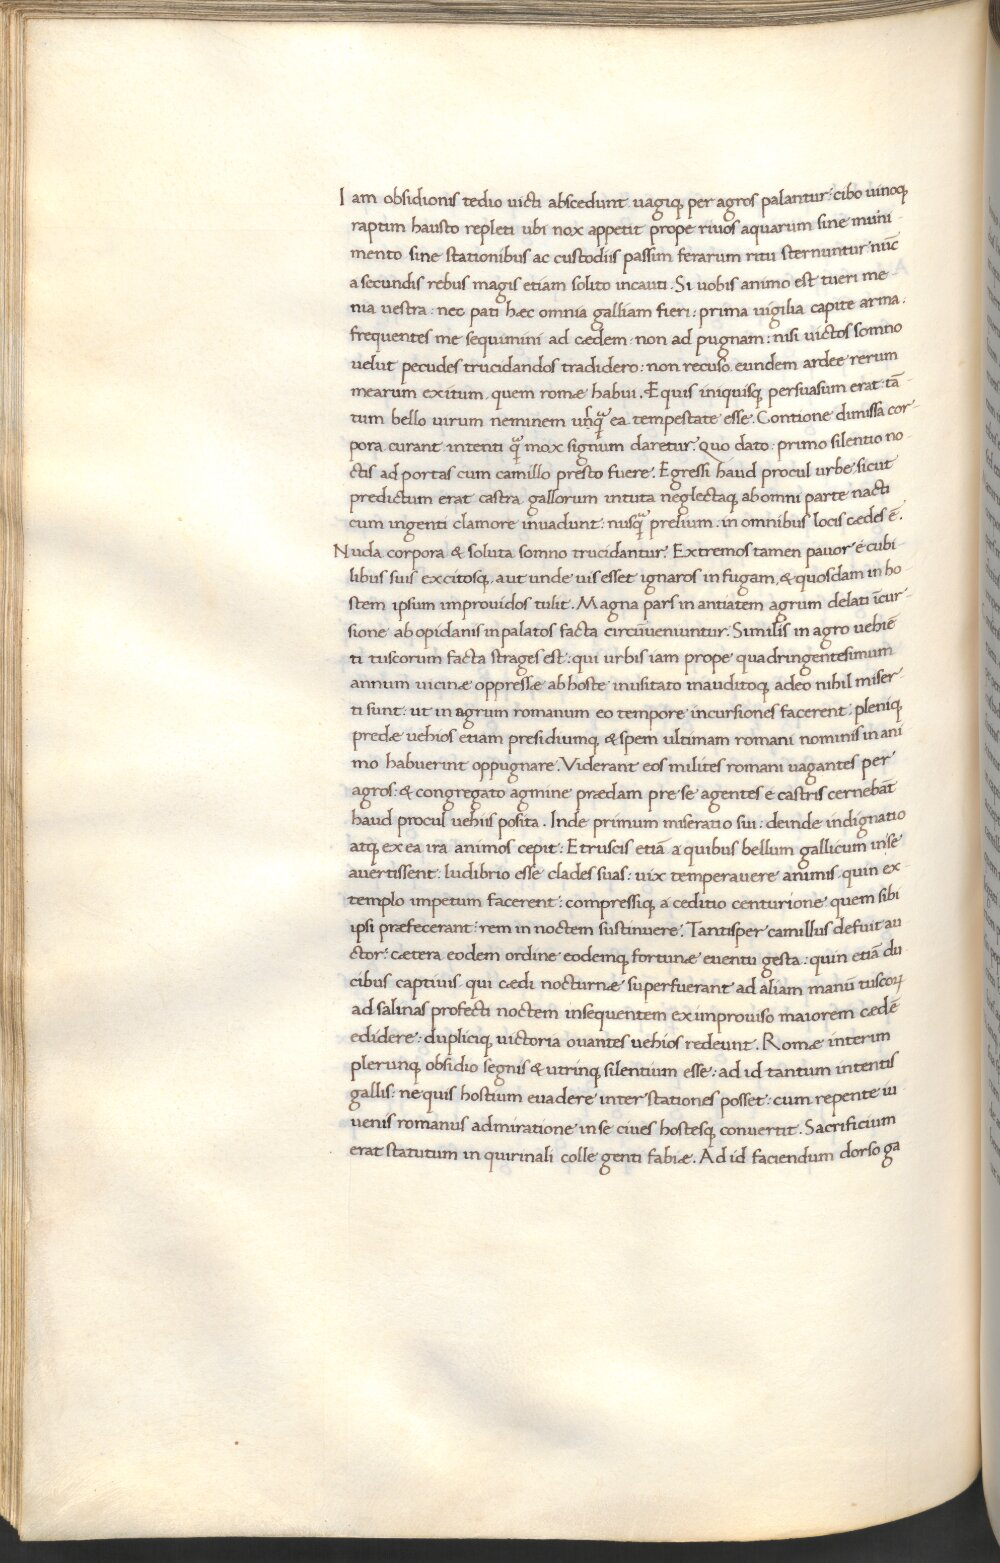 Iam obsidionis tedio uicti abscedunt uagiq; per agros palantur: cibo uinoq;
raptim hausto repleti ubi nox appetit prope riuos aquarum sine muni-
mento sine stationibus ac custodiis passim ferarum ritu sternuntur nūc
a secundis rebus magis etiam solito incauti. Si uobis animo est tueri me-
nia uestra: nec pati hæc omnia galliam fieri: prima uigilia capite arma:
frequentes me sequimini ad cædem: non ad pugnam: nisi uictos somno
uelut pecudes trucidandos tradidero: non recuso eundem ardee rerum
mearum exitum, quem romæ habui. Equis iniquisq; persuasum erat: tā-
tum bello uirum neminem usq̄ ea tempestate esse. Contione dimissa cor-
pora curant intenti q̄ mox signum daretur. Quo dato: primo silentio no-
ctis ad portas cum camillo presto fuere. Egressi haud procul urbe sicut
predictum erat castra gallorum intuta neglectaq; ab omni parte nacti
cum ingenti clamore inuadunt: nusq̄ prelium: in omnibus locis cædes ē.
Nuda corpora & soluta somno trucidantur. Extremos tamen pauor e cubi-
libus suis excitosq; aut unde uis esset ignaros in fugam, & quosdam in ho-
stem ipsum improuidos tulit. Magna pars in antiatem agrum delati īcur-
sione ab opidanis in palatos facta circūueniuntur. Similis in agro uehiē-
ti tuscorum facta strages est: qui urbis iam prope quadringentesimum
annum uicinæ oppressæ ab hoste inusitato inauditoq; adeo nihil miser-
ti sunt: ut in agrum romanum eo tempore incursiones facerent: pleniq;
predæ uehios etiam presidiumq; & spem ultimam romani nominis in ani
mo habuerint oppugnare. Viderant eos milites romani uagantes per
agros: & congregato agmine prædam pre se agentes e castris cernebāt
haud procul uehiis posita. Inde primum miseratio sui: deinde indignatio
atq; ex ea ira animos cepit: Etruscis etiā a quibus bellum gallicum in se
auertissent: ludibrio esse clades suas: uix temperauere animis quin ex-
templo impetum facerent: compressiq; a ceditio centurione quem sibi
ipsi præfecerant: rem in noctem sustinuere. Tantisper camillus defuit au
ctor: cætera eodem ordine eodemq; fortunæ euentu gesta: quin etiā du
cibus captiuis qui cædi nocturnæ superfuerant ad aliam manū tuscoꝝ
ad salinas profecti noctem insequentem ex improuiso maiorem cædē
edidere: dupliciq; uictoria ouantes uehios redeunt. Romæ interim
plerunq; obsidio segnis & utrinq; silentium esse: ad id tantum intentis
gallis: ne quis hostium euadere inter stationes posset: cum repente iu
uenis romanus admiratione in se ciues hostesq; conuertit. Sacrificium
erat statutum in quirinali colle genti fabiæ. Ad id faciendum dorso ga